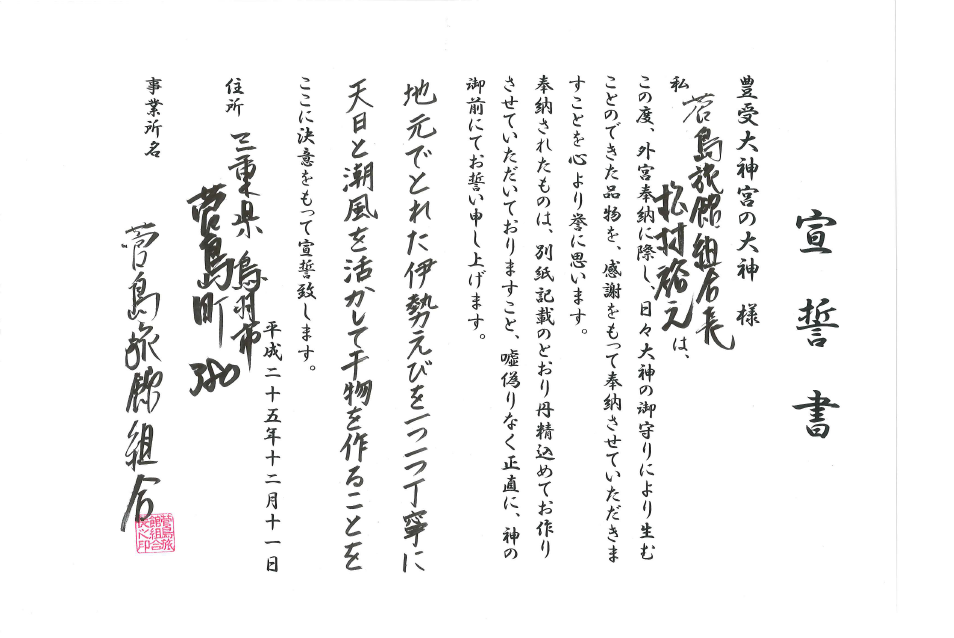 宣誓書
豊受大神宮の大神 様
私 菅島旅館組合長
松村裕元は、
この度、外宮奉納に際し、日々大神の御守りにより生む
ことのできた品物を、感謝をもって奉納させていただきま
すことを心より誉に思います。
奉納されたものは、別紙記載のとおり丹精込めてお作り
させていただいておりますこと、嘘偽りなく正直に、神の
御前にてお誓い申し上げます。
地元でとれた伊勢えびを一つ一つ丁寧に
天日と潮風を活かして干物を作ることを
ここに決意をもって宣誓致します。
平成二十五年十二月十一日
住所 三重県鳥羽市
菅島町
事業所名
菅島旅館組合
菅島旅
館組合
長之印